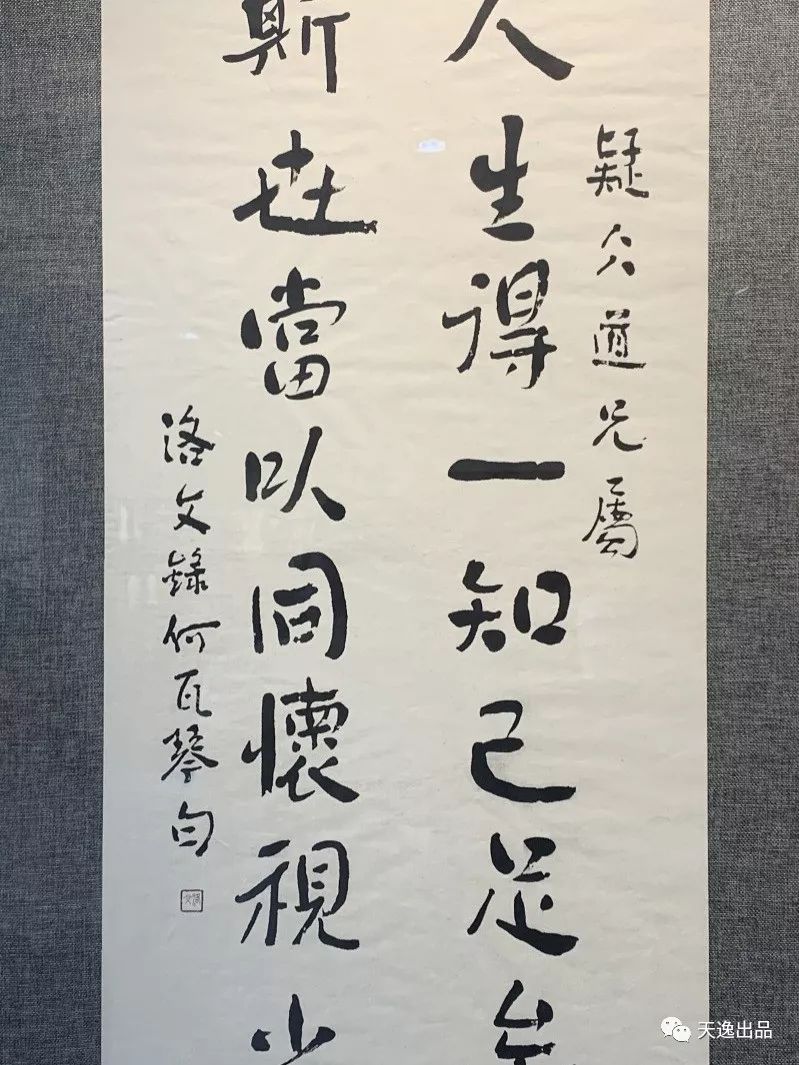 疑仌道兄屬
人生得一知己足矣
斯世當以同懷視之
洛文錄何瓦琴句
天逸出品